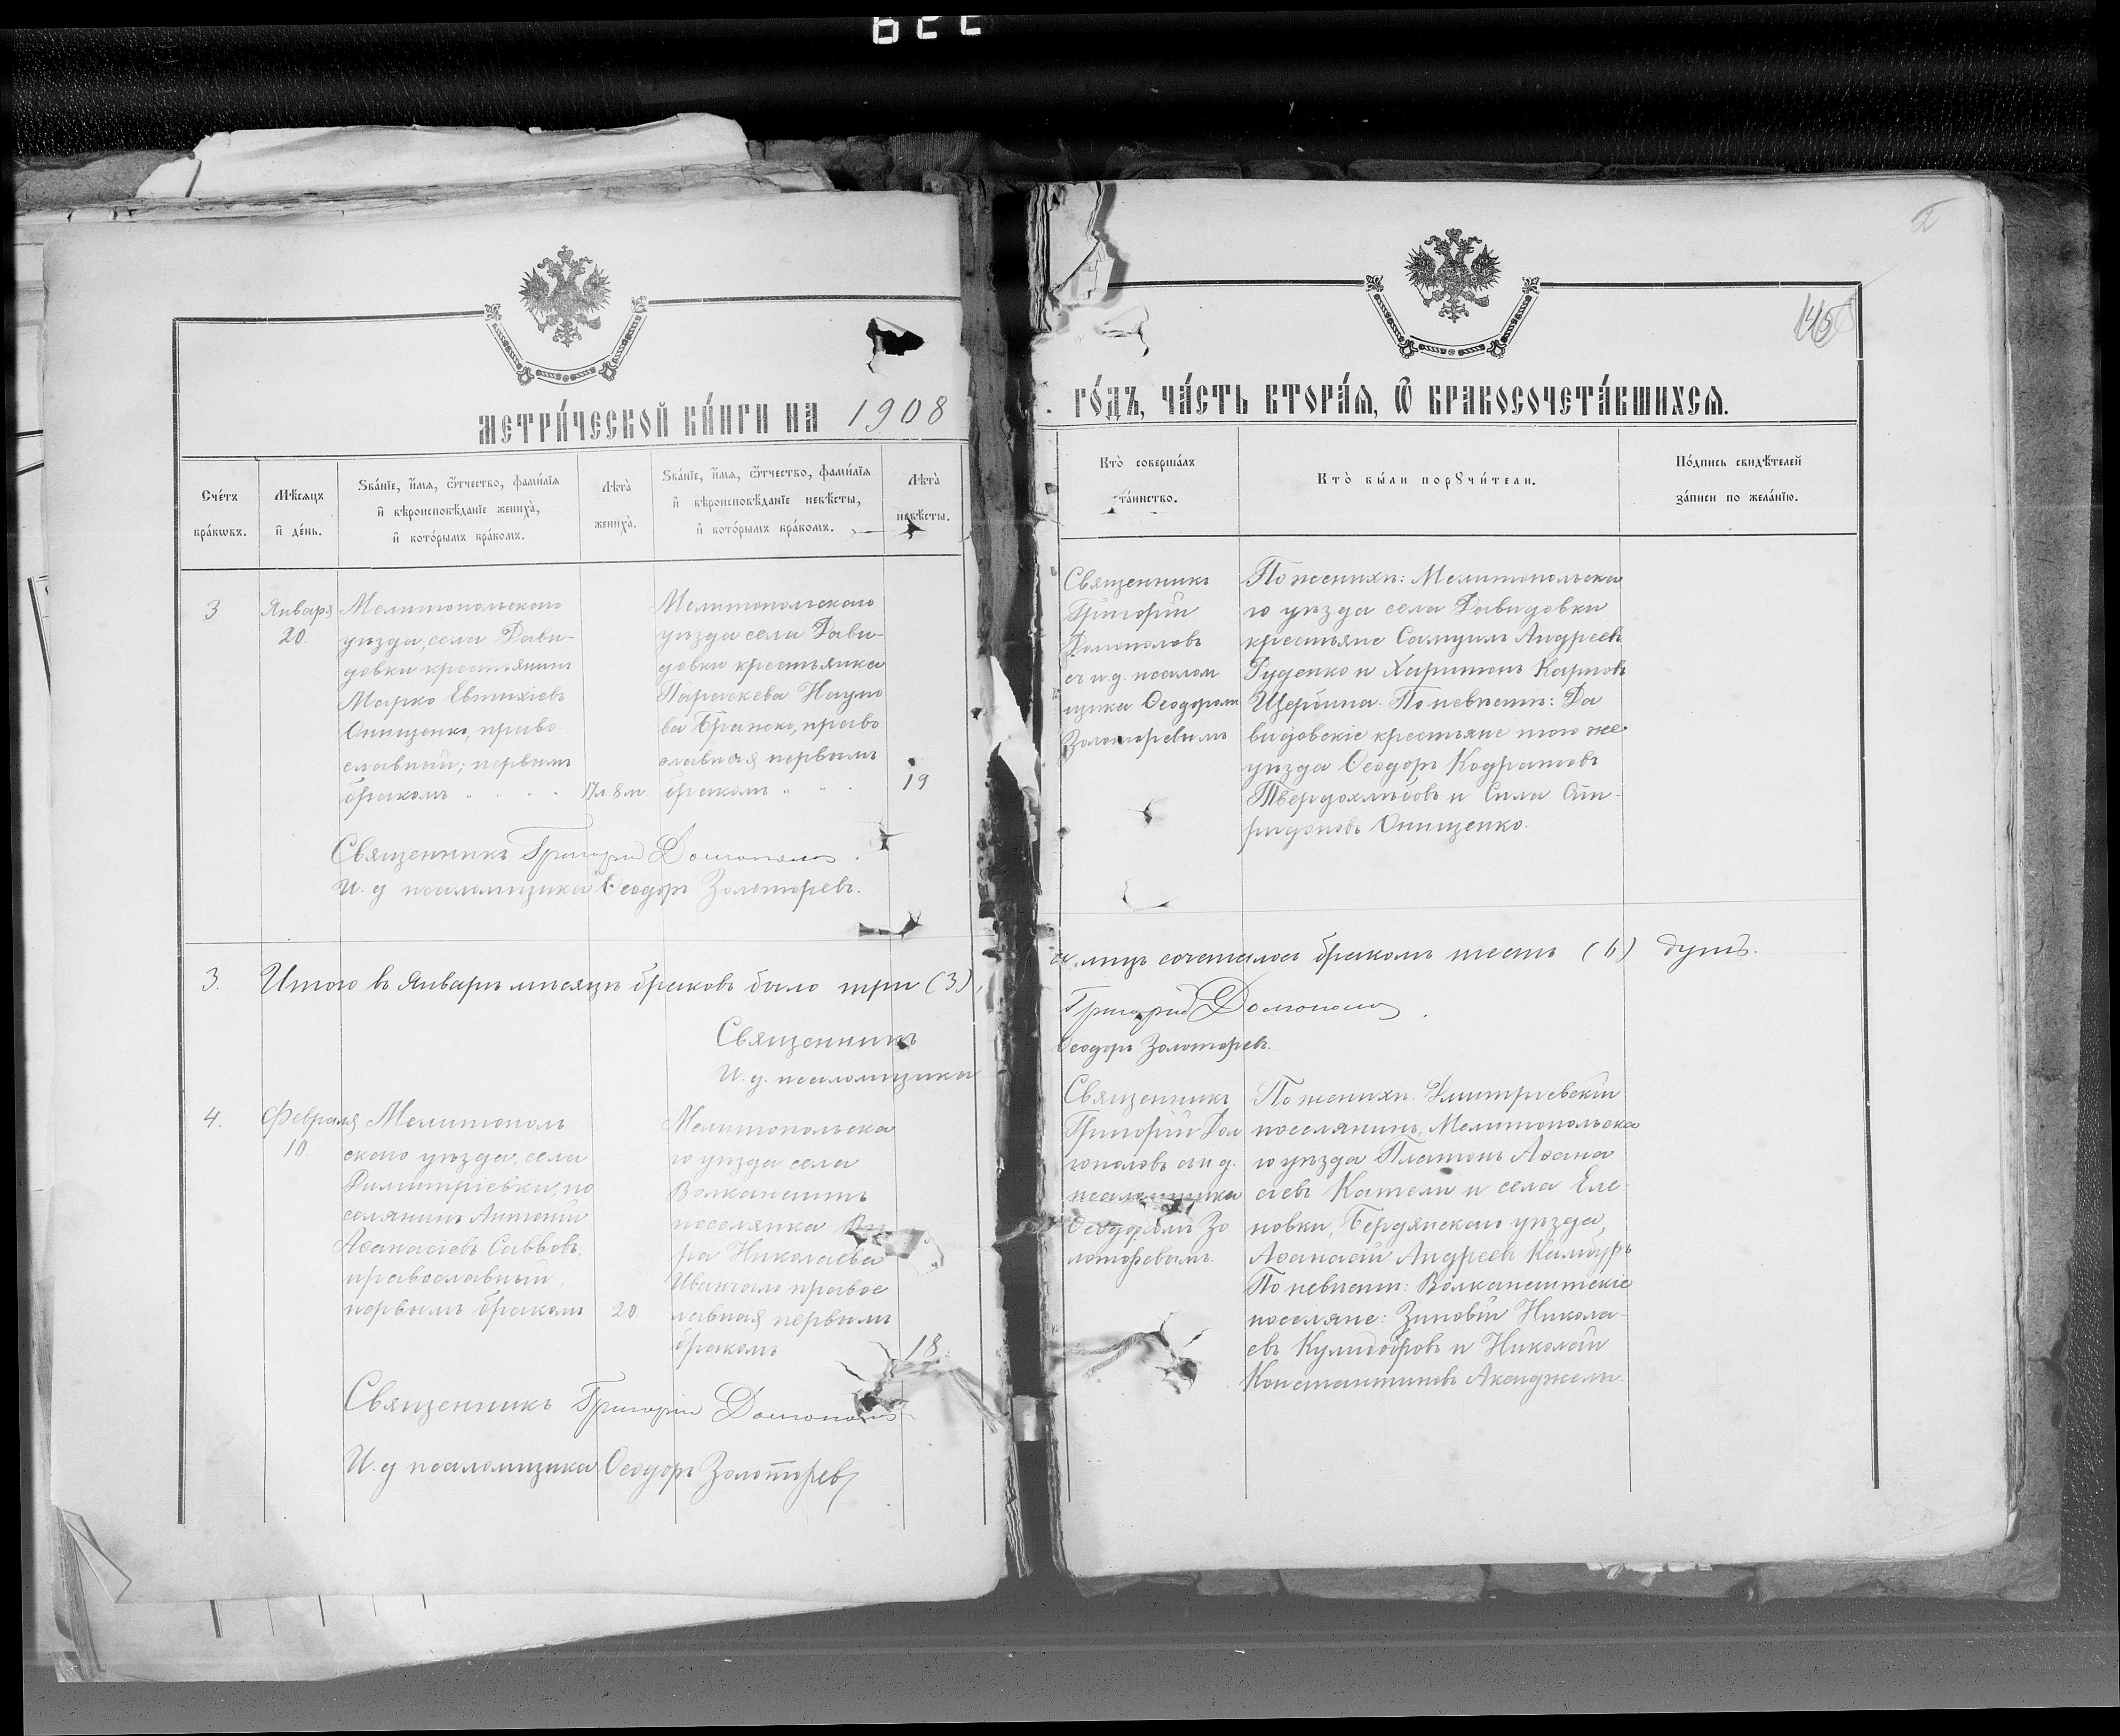 229
2
145
МЕТРИ́ЧЕСКОЙ КНИ́ГИ НА 1908
ГО́ДЪ, ЧА́СТЬ ВТОРА́Я, Ѽ БРАКОСОЧЕТА́ВШИХСЯ.
Сче́тъ бра́кѡвъ.
Мѣ́сяцъ и҆ де́нь.
Ѕва́нїе, и҆́мя, ѻ҆́тчество, фами́лїя
и҆ вѣроисповѣ́данїе жениха̀,
и҆ кото́рымъ бра́комъ.
Лѣта̀ жениха̀.
Ѕва́нїе, и҆́мя, ѻ҆́тчество, фами́лїя
и҆ вѣроисповѣ́данїе невѣ́сты,
и҆ кото́рымъ бра́комъ.
Лѣта̀ невѣ́сты.
Кто̀ соверша́лъ
та́инство.
Кто̀ бы́ли порꙋчи́тели.
По́дпись свидѣ́телей
за́писи по жела́нїю.
3
Января
20.
Мелитопольскаго
уѣзда, села Дави-
довки крестьянинъ
Марко Евтихіевъ
Онищенко, право
славный; первымъ
бракомъ
17 л 8 м.
Мелитопольскаго
уѣзда села Дави-
довки крестьянка
Параскева Наумо
ва право
славная первымъ
бракомъ
19
Священникъ
Григорій
Долгополовъ
съ и.д. псалом
щика Ѳеодоромъ
Золоторевымъ
По женихѣ: Мелитопольска
го уѣзда села Давидовки
крестьяне Самуилъ Андреевъ
Руденко и Харитонъ Карповъ
Щербина. По невѣстѣ: Да
видовскіе крестьяне того же
уѣзда Ѳеодоръ Кодратовъ
Твердохлѣбовъ и Сила Спи-
ридоновъ Онищенко.
Священникъ Григорій Долгополовъ
И. д псаломщика Ѳеодоръ Золоторевъ.
3. Итого въ Январѣ мѣсяцѣ браковъ было три (3),
а лицъ сочеталось бракомъ шесть (6) душъ.
Священникъ Григорій Долгополовъ
И. д. псаломщика Ѳеодоръ Золоторевъ.
4.
Февраля
10.
Мелитополь
скаго уѣзда, села
Димитріевки, по
селянинъ Антоній
Аѳанасіевъ Саввовъ,
православный,
первымъ бракомъ
20.
Мелитопольска
го уѣзда села
Волканештъ
поселянка Вѣ
ра Николаева
православ
ная первымъ
бракомъ
18.
Священникъ
Григорій Дол
гополовъ съ и д.
псаломщика
Ѳеодоромъ Зо
лоторевымъ.
По женихѣ. Димитріевскій
поселянинъ, Мелитопольска
го уѣзда Платонъ Аѳана
сіевъ и села Еле
новки, Бердянскаго уѣзда,
Аѳанасій Андреевъ Камбуръ
По невѣстѣ: Волканештскіе
поселяне: Зиновій Никола-
евъ и Николай
Константиновъ
Священникъ Григорій Долгополовъ
И. д псаломщика Ѳеодоръ Золоторевъ